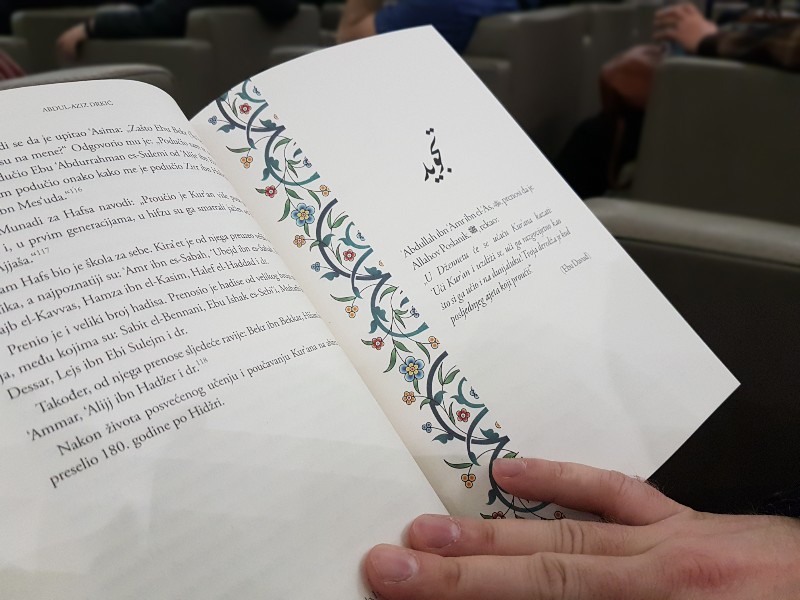 ABDUL-AZIZ DRKIĆ
di se da je upitao 'Asima: „Zašto Ebu Bekr
su na mene?“ Odgovorio mu je: „Podučio sam
dučio Ebu 'Abdurrahman es-Sulemi od 'Alije ibn
m podučio onako kako me je podučio Zirr ibn
bn Mes'uda.“116
Munadi za Hafsa navodi: „Proučio je Kur'an više
i, u prvim generacijama, u hifzu su ga smatrali jačim
Ajjaša.“117
am Hafs bio je škola za sebe. Kira'et je od njega preuzeo
lika, a najpoznatiji su: 'Amr ibn es-Sabah, 'Ubejd ibn es-Sabah
ajb el-Kavvas, Hamza ibn el-Kasim, Halef el-Haddad i dr.
Prenio je i veliki broj hadisa. Prenosio je hadise od velikog
ja, među kojima su: Sabit el-Bennani, Ebu Ishak es-Sebi'i,
Dessar, Lejs ibn Ebi Sulejm i dr.
Također, od njega prenose sljedeće ravije: Bekr ibn Bekkar,
'Ammar, 'Alijj ibn Hadžer i dr.118
Nakon života posvećenog učenju i poučavanju Kur'ana na
preselio 180. godine po Hidžri.
تجويد
Abdullah ibn Amr ibn el-As, prenosi da je
Allahov Poslanik, ﷺ, rekao:
„U Džennetu će se učaču Kur'ana kazati:
'Uči Kur'an i uzdiži se, uči ga razgovijetno kao
što si ga učio i na dunjaluku! Tvoja deredža je kod
posljednjeg ajeta koji proučiš'“
(Ebu Davud)